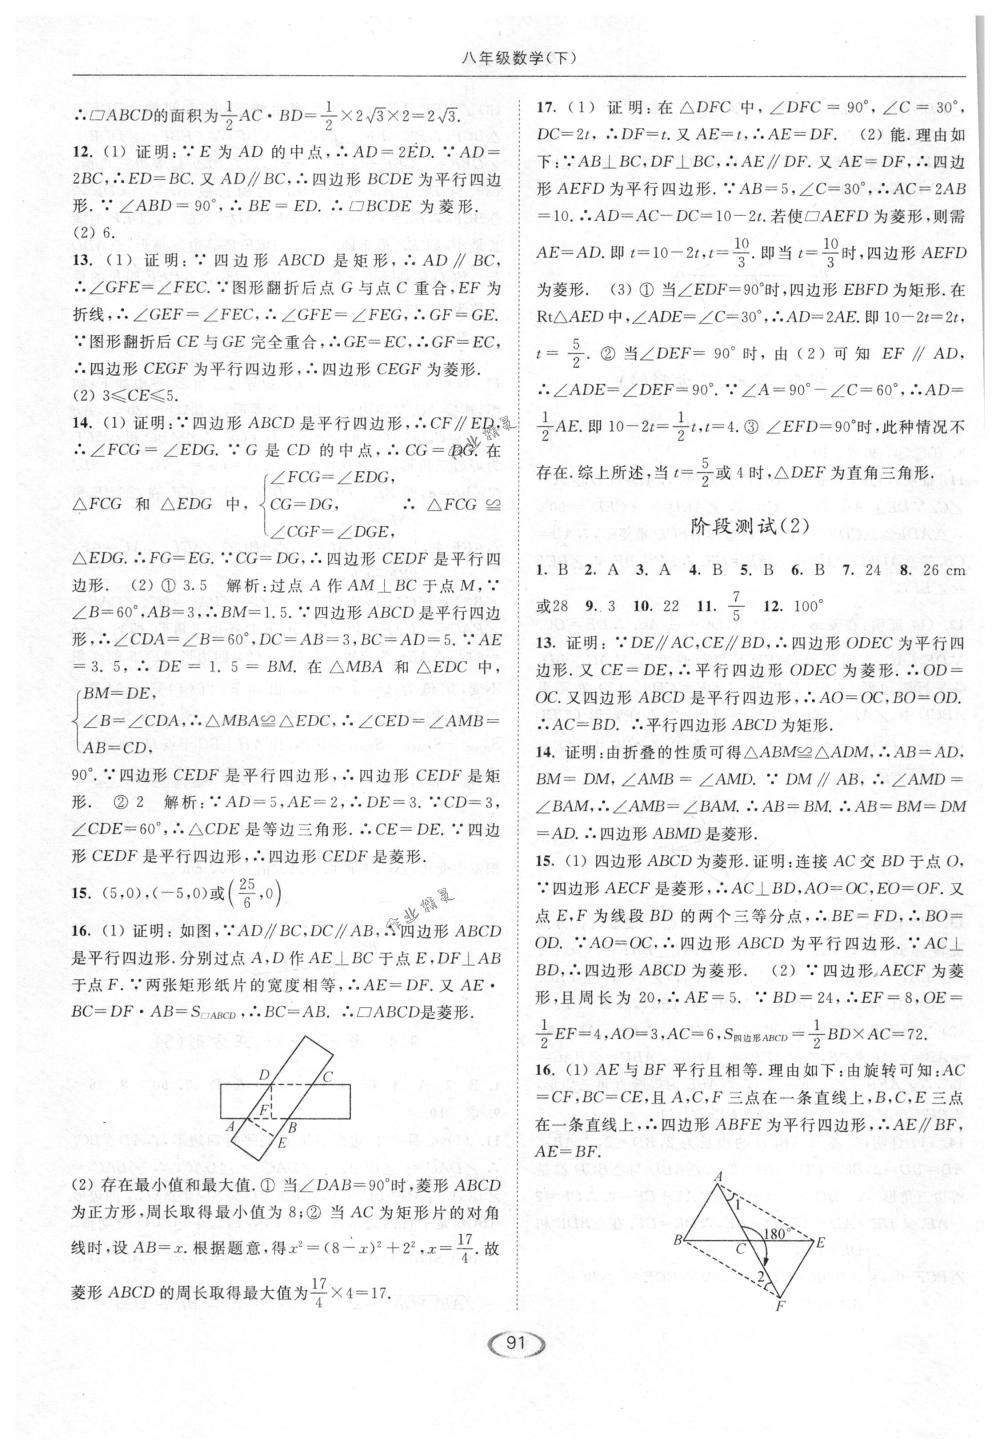 八年级数学(下)
∴□ABCD的面积为1/2AC·BD=1/2×2√3×2=2√3.
12. (1) 证明:∵E 为 AD 的中点,∴AD=2ED.∵AD=
2BC,∴ED=BC.又 AD∥BC,∴四边形 BCDE 为平行四边
形.∵∠ABD=90°,∴BE=ED.∴□BCDE 为菱形.
(2) 6.
13. (1) 证明:∵四边形 ABCD 是矩形,∴AD∥BC,
∴∠GFE=∠FEC.∵图形翻折后点 G 与点 C 重合,EF 为
折线,∴∠GEF=∠FEC,∴∠GFE=∠FEG,∴GF=GE.
∵图形翻折后 CE 与 GE 完全重合,∴GE=EC,∴GF=EC,
∴四边形 CEGF 为平行四边形,∴四边形 CEGF 为菱形.
(2) 3≤CE≤5.
14. (1) 证明:∵四边形 ABCD 是平行四边形,∴CF∥ED,
∴∠FCG=∠EDG.∵G 是 CD 的中点,∴CG=DG.在
△FCG 和 △EDG 中,{∠FCG=∠EDG,
CG=DG,
∠CGF=∠DGE, ∴△FCG≌
△EDG.∴FG=EG.∵CG=DG,∴四边形 CEDF 是平行四
边形. (2) ① 3.5 解析:过点 A 作 AM⊥BC 于点 M,∵
∠B=60°,AB=3,∴BM=1.5.∵四边形 ABCD 是平行四边
形,∴∠CDA=∠B=60°,DC=AB=3,BC=AD=5.∵AE
=3.5,∴DE=1.5=BM.在△MBA 和△EDC 中,
{BM=DE,
∠B=∠CDA,∴△MBA≌△EDC,∴∠CED=∠AMB=
AB=CD,
90°.∵四边形 CEDF 是平行四边形,∴四边形 CEDF 是矩
形. ② 2 解析:∵AD=5,AE=2,∴DE=3.∵CD=3,
∠CDE=60°,∴△CDE 是等边三角形.∴CE=DE.∵四边
形 CEDF 是平行四边形,∴四边形 CEDF 是菱形.
15. (5,0),(-5,0)或(25/6,0)
16. (1) 证明:如图,∵AD∥BC,DC∥AB,∴四边形 ABCD
是平行四边形.分别过点 A,D 作 AE⊥BC 于点 E,DF⊥AB
于点 F.∵两张矩形纸片的宽度相等,∴AE=DF.又 AE·
BC=DF·AB=S□ABCD,∴BC=AB.∴□ABCD是菱形.
D
C
F
A
B
E
(2) 存在最小值和最大值.① 当∠DAB=90°时,菱形 ABCD
为正方形,周长取得最小值为 8;② 当 AC 为矩形片的对角
线时,设 AB=x.根据题意,得x²=(8-x)²+2²,x=17/4.故
菱形 ABCD 的周长取得最大值为17/4×4=17.
17. (1) 证明:在 △DFC 中,∠DFC=90°,∠C=30°,
DC=2t,∴DF=t.又 AE=t,∴AE=DF. (2) 能.理由如
下:∵AB⊥BC,DF⊥BC,∴AE∥DF.又 AE=DF,∴四边
形 AEFD 为平行四边形.∵AB=5,∠C=30°,∴AC=2AB
=10.∴AD=AC-DC=10-2t.若使□AEFD 为菱形,则需
AE=AD.即 t=10-2t,t=10/3.即当 t=10/3时,四边形 AEFD
为菱形. (3) ① 当∠EDF=90°时,四边形 EBFD 为矩形.在
Rt△AED 中,∠ADE=∠C=30°,∴AD=2AE.即 10-2t=2t,
t=5/2. ② 当∠DEF=90°时,由(2)可知 EF∥AD,
∴∠ADE=∠DEF=90°.∵∠A=90°-∠C=60°,∴AD=
1/2AE.即 10-2t=1/2t,t=4.③ ∠EFD=90°时,此种情况不
存在.综上所述,当 t=5/2或 4 时,△DEF 为直角三角形.
阶段测试(2)
1. B 2. A 3. A 4. B 5. B 6. B 7. 24 8. 26 cm
或28 9. 3 10. 22 11. 7/5 12. 100°
13. 证明:∵DE∥AC,CE∥BD,∴四边形 ODEC 为平行四
边形.又 CE=DE,∴平行四边形 ODEC 为菱形.∴OD=
OC.又四边形 ABCD 是平行四边形,∴AO=OC,BO=OD.
∴AC=BD.∴平行四边形 ABCD 为矩形.
14. 证明:由折叠的性质可得△ABM≌△ADM,∴AB=AD,
BM=DM,∠AMB=∠AMD.∵DM∥AB,∴∠AMD=
∠BAM,∴∠AMB=∠BAM.∴AB=BM.∴AB=BM=DM
=AD.∴四边形 ABMD 是菱形.
15. (1) 四边形 ABCD 为菱形.证明:连接 AC 交 BD 于点 O,
∵四边形 AECF 是菱形,∴AC⊥BD,AO=OC,EO=OF.又
点 E,F 为线段 BD 的两个三等分点,∴BE=FD,∴BO=
OD.∵AO=OC,∴四边形 ABCD 为平行四边形.∵AC⊥
BD,∴四边形 ABCD 为菱形. (2) ∵四边形 AECF 为菱
形,且周长为 20,∴AE=5.∵BD=24,∴EF=8,OE=
1/2EF=4,AO=3,AC=6,S四边形ABCD=1/2BD×AC=72.
16. (1) AE 与 BF 平行且相等.理由如下:由旋转可知:AC
=CF,BC=CE,且 A,C,F 三点在一条直线上,B,C,E 三点
在一条直线上,∴四边形 ABFE 为平行四边形,∴AE∥BF,
AE=BF.
A
1
B
C
180°
E
2
F
91